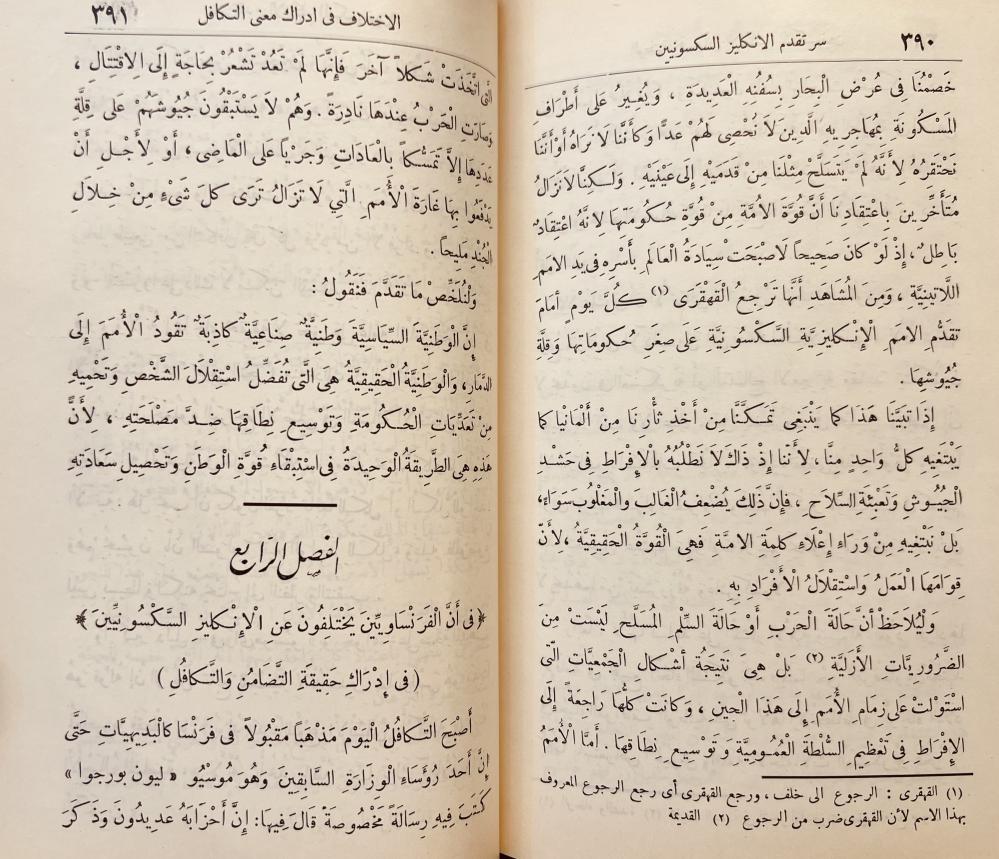 ٣٩٠ سر تقدم الانكليز السكسونيين
خَصْمُنَا فِى عُرْضِ الْبِحَارِ بِسُفُنِهِ الْعَدِيدَةِ ، وَيُغِيرُ عَلَى أَطْرَافِ
الْمَسْكُونَةِ بِمُهَاجِرِيهِ الَّذِينَ لَا نُحْصِى لَهُمْ عَدًّا وَكَأَنَّنَا لَا نَرَاهُ أَوْ أَنَّنَا
نَحْتَقِرُهُ لِأَنَّهُ لَمْ يَتَسَلَّحْ مِثْلَنَا مِنْ قَدَمَيْهِ إِلَى عَيْنَيْهِ . وَلَكِنَّنَا لَا نَزَالُ
مُتَأَخِّرِينَ بِاعْتِقَادِنَا أَنَّ قُوَّةَ الْأُمَّةِ مِنْ قُوَّةِ حُكُومَتِهَا لِانَّهُ اعْتِقَادٌ
بَاطِلٌ ، إِذْ لَوْ كَانَ صَحِيحًا لَاصْبَحَتْ سِيَادَةُ الْعَالَمِ بِأَسْرِهِ فِى يَدِ الامَمِ
اللَّاتِينِيَّةِ ، وَمِنَ الْمُشَاهَدِ أَنَّهَا تَرْجِعُ الْقَهْقَرَى (١) كُلَّ يَوْمٍ أَمَامَ
تَقَدُّمِ الامَمِ الْإِنْكِلِيزِيَّةِ السَّكْسُونِيَّةِ عَلَى صِغَرِ حُكُومَاتِهَا وَقِلَّةِ
جُيُوشِهَا .
إِذَا تَبَيَّنَّا هَذَا كَمَا يَنْبَغِى تَمَكَّنَّا مِنْ أَخْذِ ثَأْرِنَا مِنْ أَلْمَانْيَا كَمَا
يَبْتَغِيهِ كُلُّ وَاحِدٍ مِنَّا ، لِأَنَّنَا إِذْ ذَاكَ لَا نَطْلُبُهُ بِالْإِفْرَاطِ فِى حَشْدِ
الْجُيُوشِ وَتَعْبِئَةِ السِّلَاحِ ، فَإِنَّ ذَلِكَ يُضْعِفُ الْغَالِبَ وَالْمَغْلُوبَ سَوَاءً ،
بَلْ نَبْتَغِيهِ مِنْ وَرَاءِ إِعْلَاءِ كَلِمَةِ الامَةِ فَهِىَ الْقُوَّةُ الْحَقِيقِيَّةُ ، لِأَنَّ
قِوَامَهَا الْعَمَلُ وَاسْتِقْلَالُ الْأَفْرَادِ بِهِ .
وَلْيُلَاحَظْ أَنَّ حَالَةَ الْحَرْبِ أَوْ حَالَةَ السِّلْمِ الْمُسَلَّحِ لَيْسَتْ مِنَ
الضَّرُورِيَّاتِ الْأَزَلِيَّةِ (٢) بَلْ هِىَ نَتِيجَةُ أَشْكَالِ الْجَمْعِيَّاتِ الَّتِى
اسْتَوْلَتْ عَلَى زِمَامِ الْأُمَمِ إِلَى هَذَا الْحِينِ ، وَكَانَتْ كُلُّهَا رَاجِعَةً إِلَى
الْإِفْرَاطِ فِى تَعْظِيمِ السُّلْطَةِ الْعُمُومِيَّةِ وَتَوْسِيعِ نِطَاقِهَا . أَمَّا الْأُمَمُ
(١) القهقرى : الرجوع الى خلف ، ورجع القهقرى أى رجع الرجوع المعروف
بهذا الاسم لأن القهقرى ضرب من الرجوع (٢) القديمة
الاختلاف فى ادراك معنى التكافل ٣٩١
الَّتِى اتَّخَذَتْ شَكْلاً آخَرَ فَإِنَّهَا لَمْ تَعُدْ تَشْعُرُ بِحَاجَةٍ إِلَى الِاقْتِتَالِ ،
وَصَارَتِ الْحَرْبُ عِنْدَهَا نَادِرَةً . وَهُمْ لَا يَسْتَبْقُونَ جُيُوشَهُمْ عَلَى قِلَّةِ
عَدَدِهَا إِلَّا تَمَسُّكاً بِالْعَادَاتِ وَجَرْيًا عَلَى الْمَاضِى ، أَوْ لِأَجْلِ أَنْ
يَدْفَعُوا بِهَا غَارَةَ الْأُمَمِ الَّتِي لَا تَزَالُ تَرَى كُلَّ شَىْءٍ مِنْ خِلَالِ
الْجُنْدِ مَلِيحًا .
وَلْنُلَخِّصْ مَا تَقَدَّمَ فَنَقُولُ :
إِنَّ الْوَطَنِيَّةَ السِّيَاسِيَّةَ وَطَنِيَّةٌ صِنَاعِيَّةٌ كَاذِبَةٌ تَقُودُ الْأُمَمَ إِلَى
الدَّمَارِ ، وَالْوَطَنِيَّةُ الْحَقِيقِيَّةُ هِىَ الَّتِى تُفَضِّلُ اسْتِقْلَالَ الشَّخْصِ وَتَحْمِيهِ
مِنْ تَعَدِّيَاتِ الْحُكُومَةِ وَتَوْسِيعِ نِطَاقِهَا ضِدَّ مَصْلَحَتِهِ ، لِأَنَّ
هَذِهِ هِىَ الطَّرِيقَةُ الْوَحِيدَةُ فِى اسْتِبْقَاءِ قُوَّةِ الْوَطَنِ وَتَحْصِيلِ سَعَادَتِهِ
الفصل الرابع
﴿ فِى أَنَّ الْفَرَنْسَاوِيِّينَ يَخْتَلِفُونَ عَنِ الْإِنْكِلِيزِ السَّكْسُونِيِّينَ ﴾
( فِى إِدْرَاكِ حَقِيقَةِ التَّضَامُنِ وَالتَّكَافُلِ )
أَصْبَحَ التَّكَافُلُ الْيَوْمَ مَذْهَبًا مَقْبُولاً فِى فَرَنْسَا كَالْبَدِيهِيَّاتِ حَتَّى
إِنَّ أَحَدَ رُؤَسَاءِ الْوِزَارَةِ السَّابِقِينَ وَهُوَ مُوسْيُو « ليون بورجوا »
كَتَبَ فِيهِ رِسَالَةً مَخْصُوصَةً قَالَ فِيهَا : إِنَّ أَحْزَابَهُ عَدِيدُونَ وَذَكَرَ